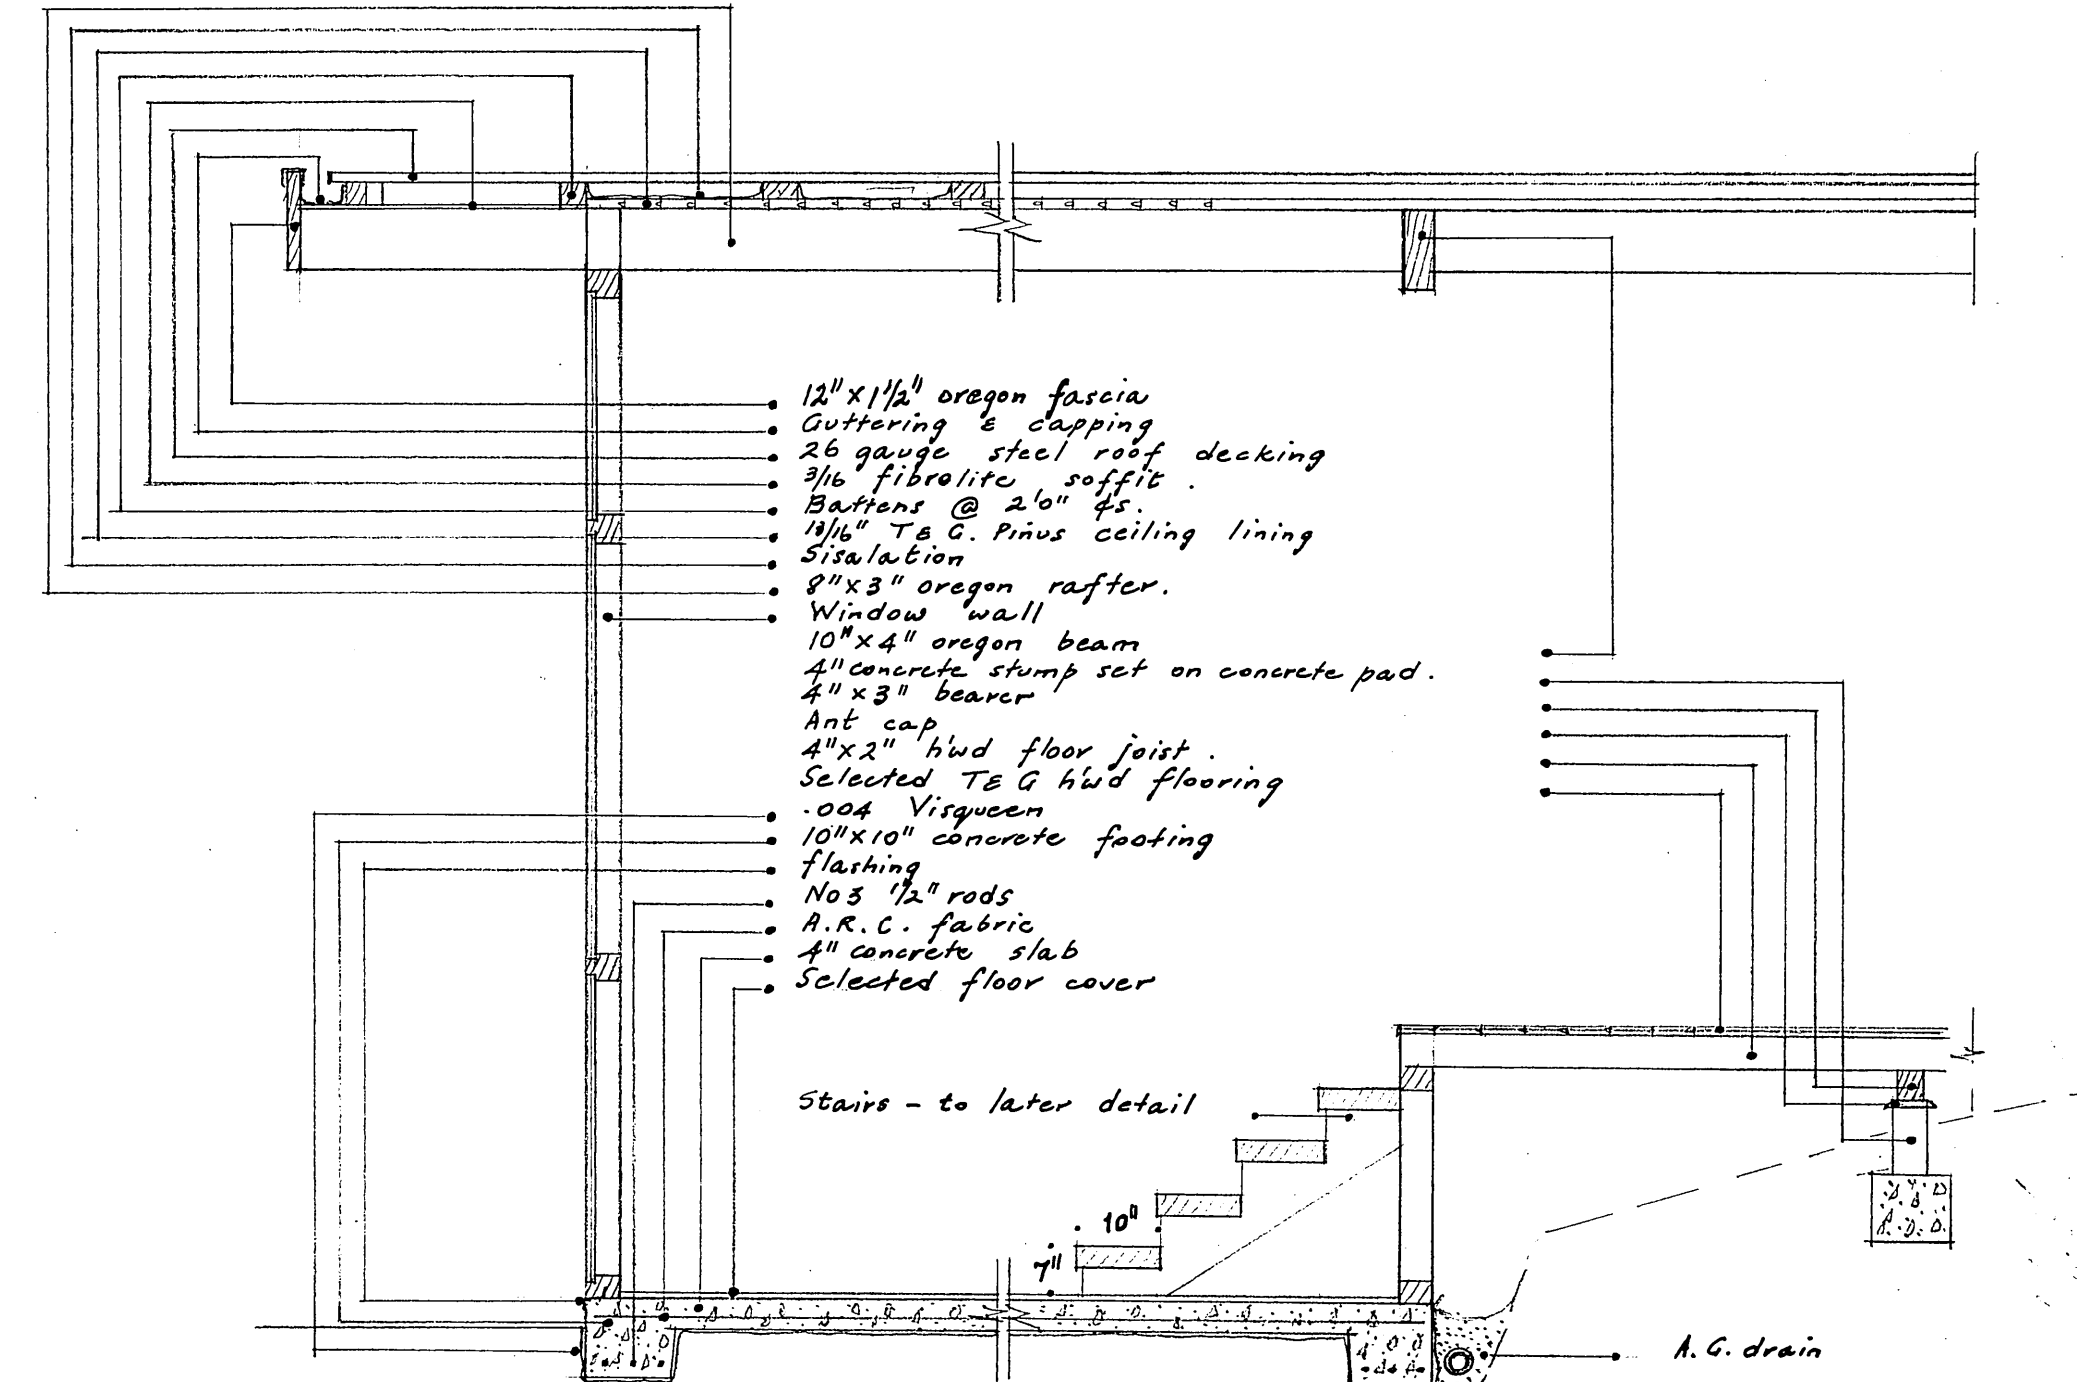 12" X 1 1/2" oregon fascia
Guttering & capping
26 gauge steel roof decking
3/16 fibrolite soffit .
Battens @ 2'0" ¢s.
13/16" T & G. Pinus ceiling lining
Sisalation
8" X 3" oregon rafter.
Window wall
10" X 4" oregon beam
4" concrete stump set on concrete pad.
4" x 3" bearer
Ant cap
4" X 2" h'wd floor joist .
Selected T & G h'wd flooring
.004 Visqueen
10" X 10" concrete footing
flashing
No 3 1/2" rods
A.R.C. fabric
4" concrete slab
Selected floor cover
Stairs - to later detail
10"
7"
A.G. drain